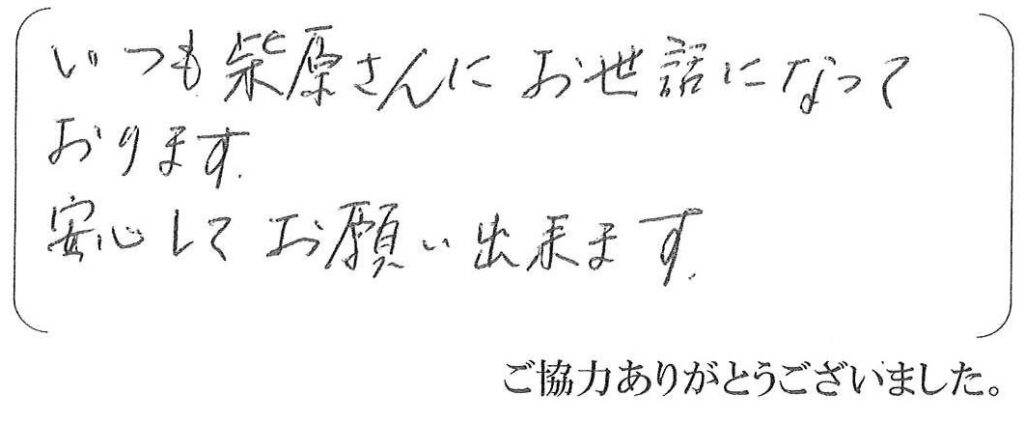 いつも柴原さんにお世話になって
おります.
安心してお願い出来ます.
ご協力ありがとうございました。